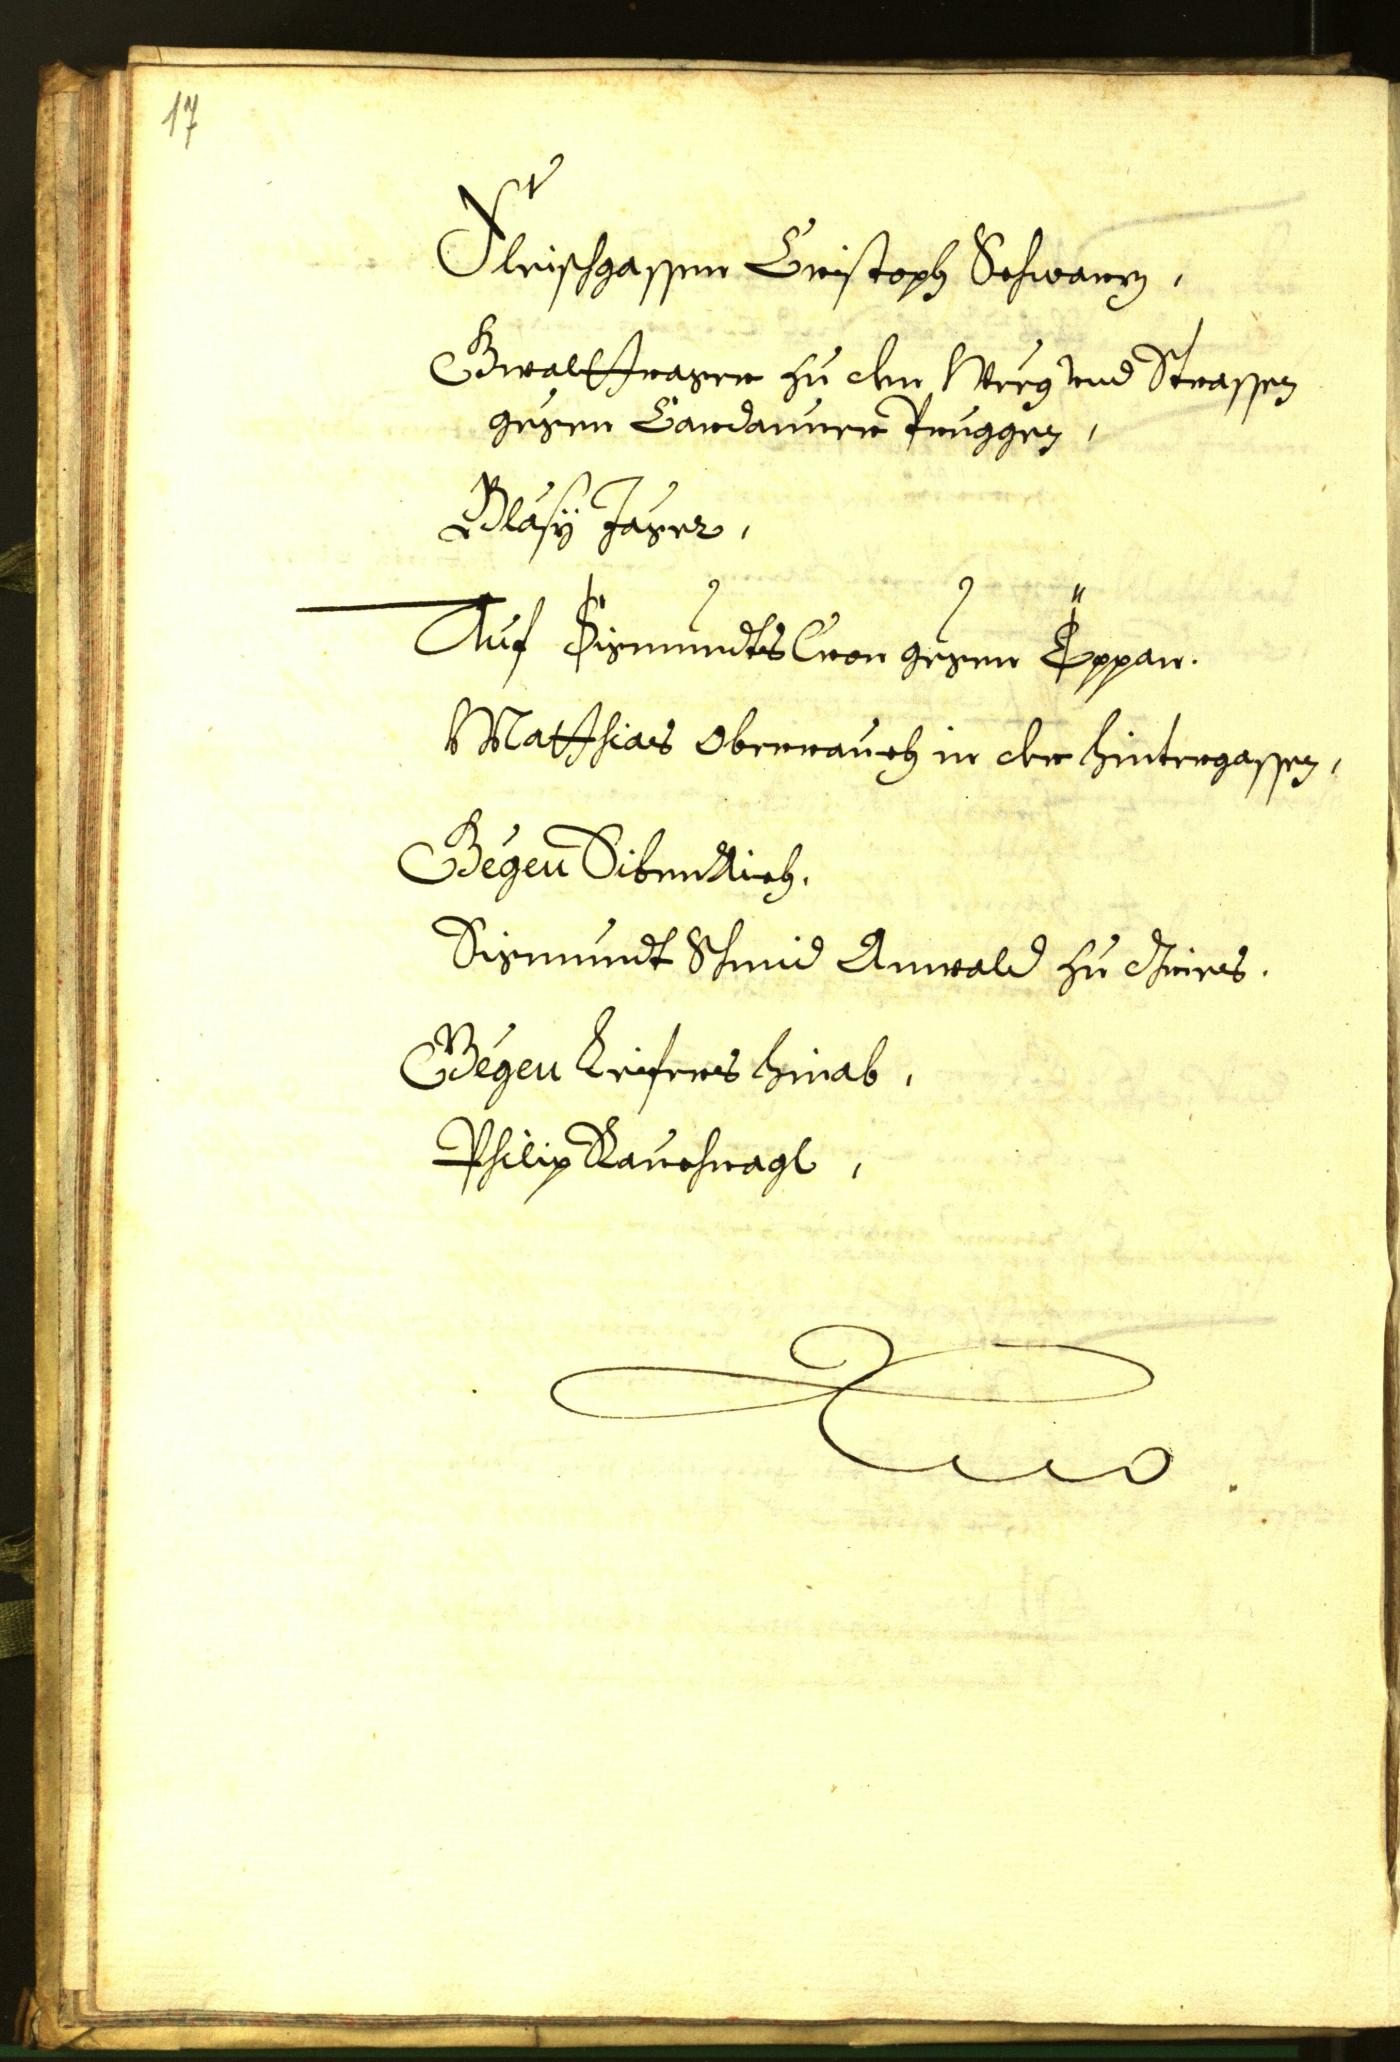 17
Fleischgassen Cristoph Schwarz,
Gwalttrager zu den Weeg vnd Strassen
gegen Cardauner Pruggen,
Blasÿ Jager,
Auf Sigmundts Cron gegen Eppan.
Matthias Oberrauch in der hintergassen,
Gegen Siben Aich.
Sigmundt Schmid Anwald zu Griess.
Gegen Leifers hinab,
Philip Rauchnagl,